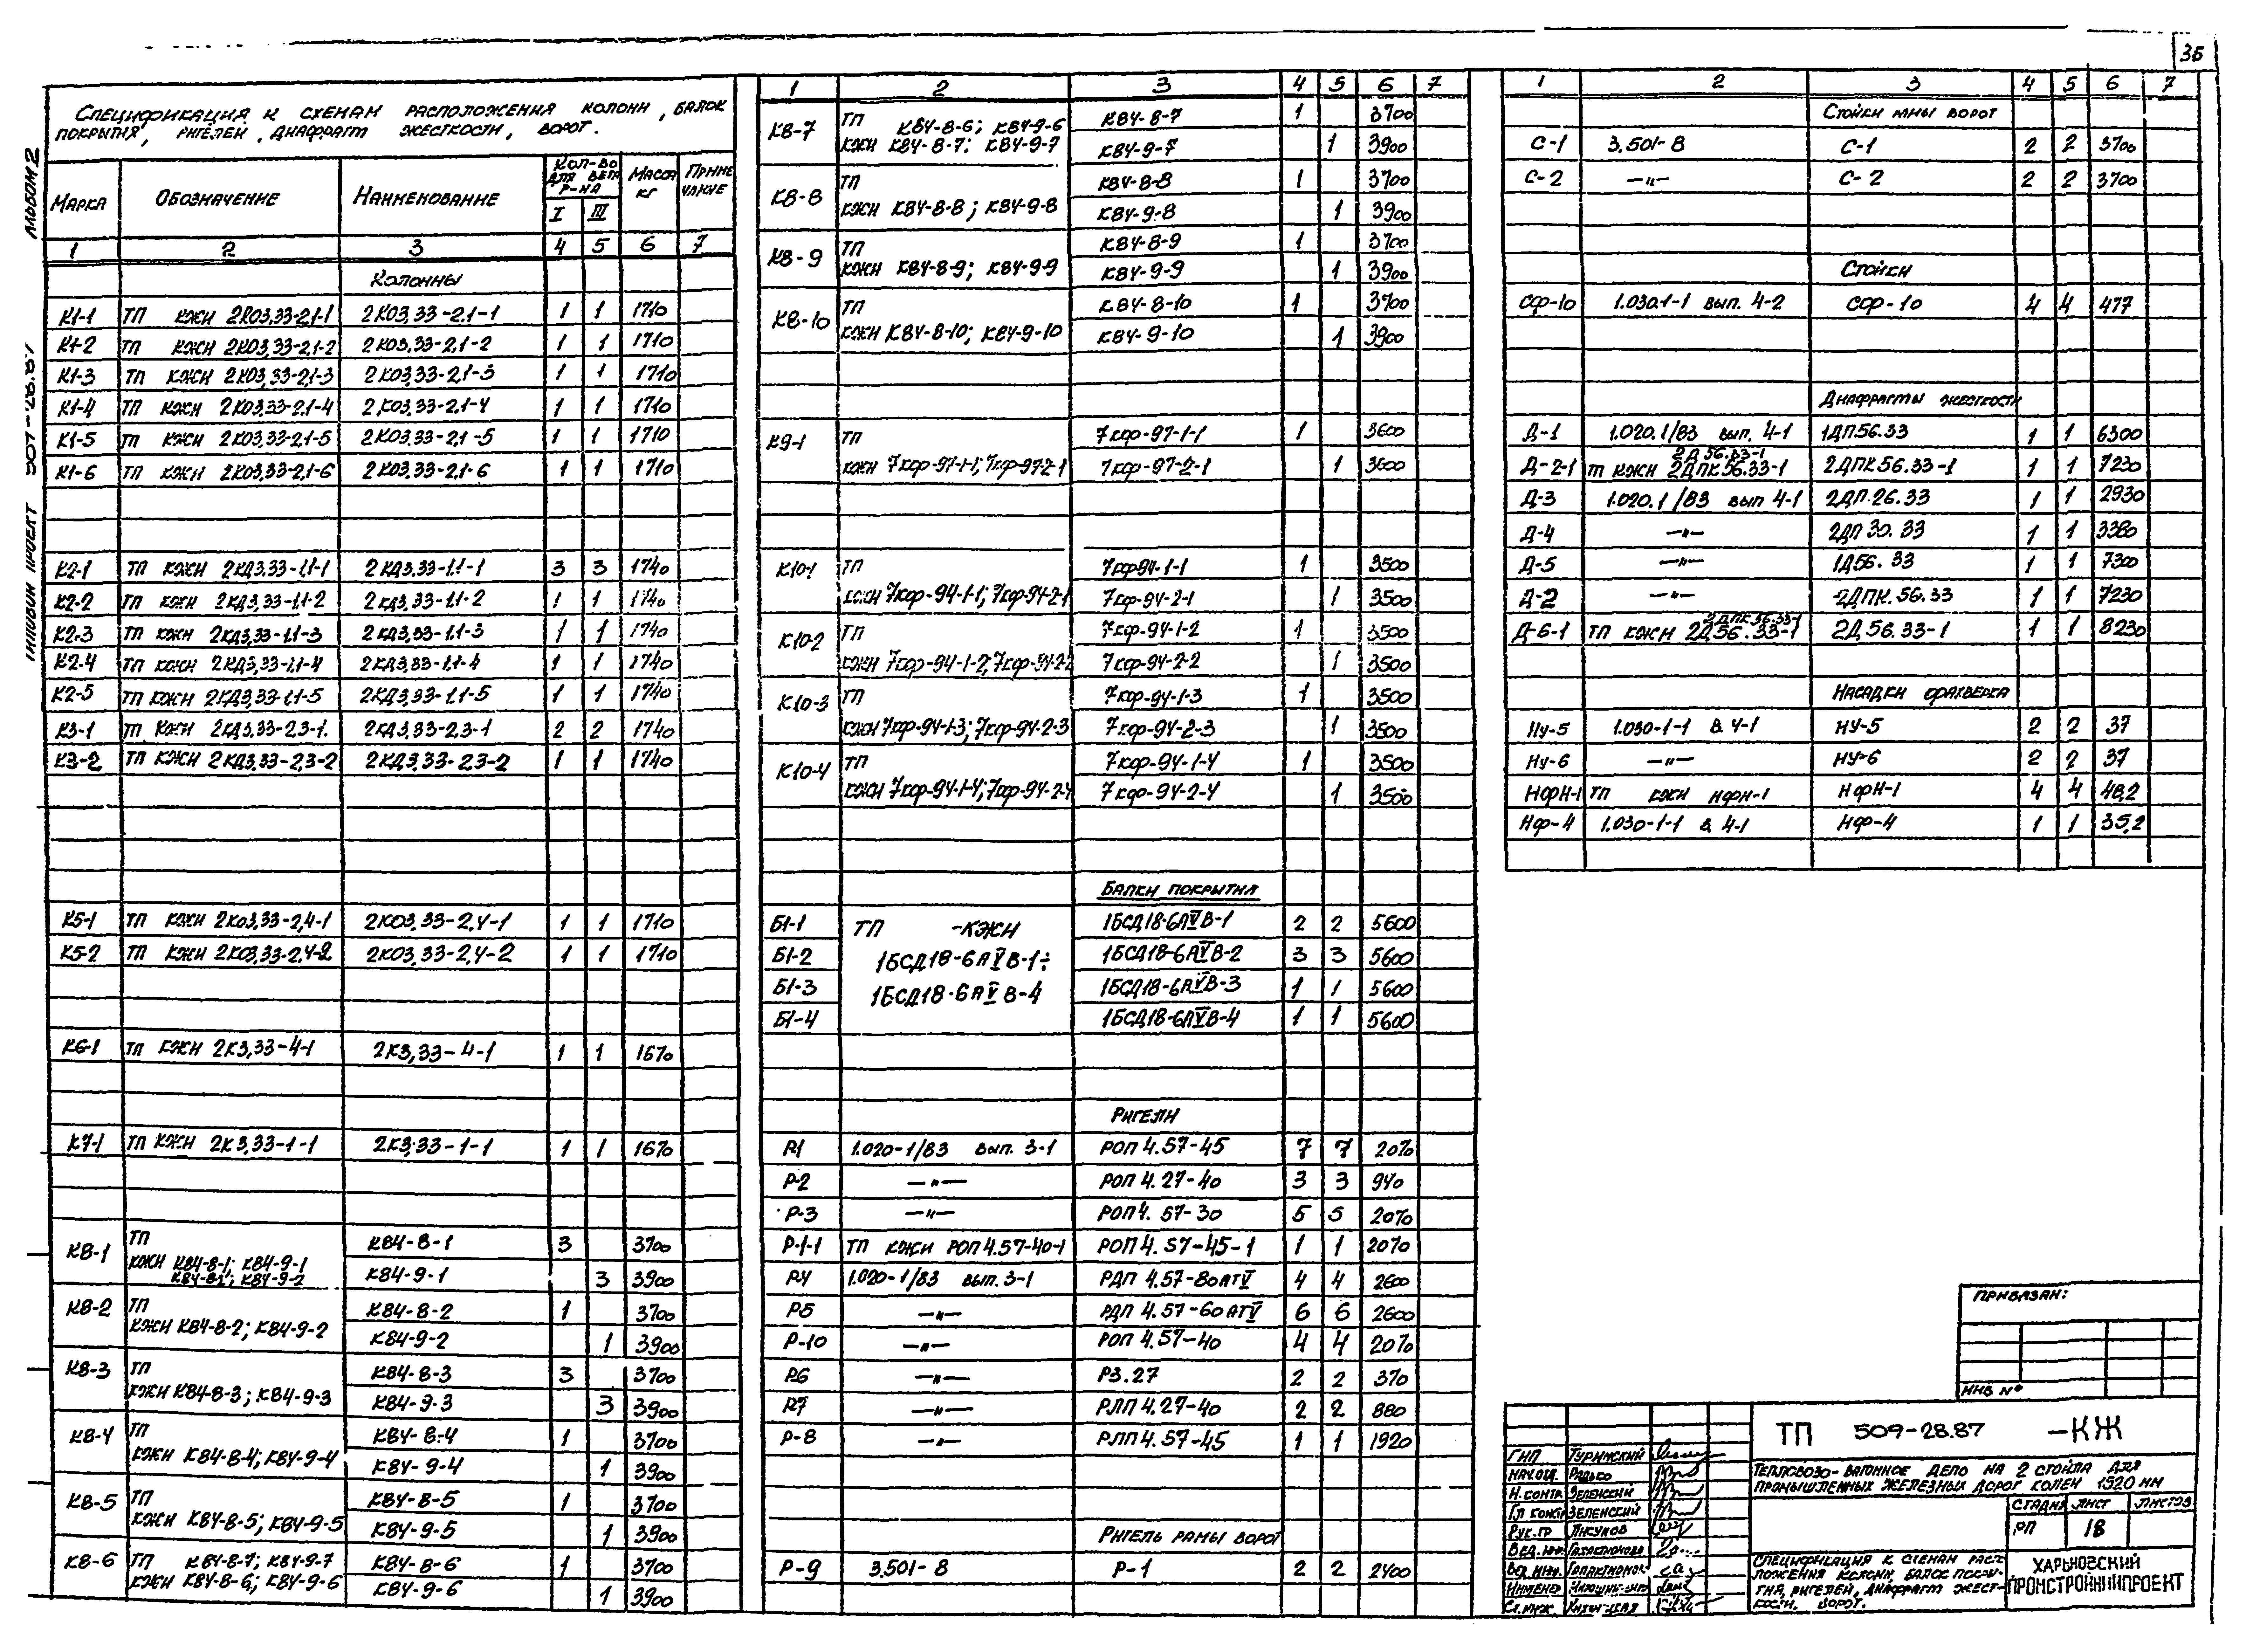 35
АЛЬБОМ 2
ТИПОВОЙ ПРОЕКТ
Спецификация к схемам расположения колонн, балок
покрытия, ригелей, диафрагм жесткости, ворот.
Марка Обозначение Наименование Кол-во для ветр. р-на I III Масса кг Примечание
1 2 3 4 5 6 7
Колонны
К1-1 ТП КЖИ 2КО3,33-2,1-1 2КО3,33-2,1-1 1 1 1710
К1-2 ТП КЖИ 2КО3,33-2,1-2 2КО3,33-2,1-2 1 1 1710
К1-3 ТП КЖИ 2КО3,33-2,1-3 2КО3,33-2,1-3 1 1 1710
К1-4 ТП КЖИ 2КО3,33-2,1-4 2КО3,33-2,1-4 1 1 1710
К1-5 ТП КЖИ 2КО3,33-2,1-5 2КО3,33-2,1-5 1 1 1710
К1-6 ТП КЖИ 2КО3,33-2,1-6 2КО3,33-2,1-6 1 1 1710
К2-1 ТП КЖИ 2КД3.33-1,1-1 2КД3.33-1,1-1 3 3 1740
К2-2 ТП КЖИ 2КД3,33-1,1-2 2КД3,33-1,1-2 1 1 1740
К2-3 ТП КЖИ 2КД3,33-1,1-3 2КД3,33-1,1-3 1 1 1740
К2-4 ТП КЖИ 2КД3,33-1,1-4 2КД3,33-1,1-4 1 1 1740
К2-5 ТП КЖИ 2КД3,33-1,1-5 2КД3,33-1,1-5 1 1 1740
К3-1 ТП КЖИ 2КД3,33-2,3-1. 2КД3,33-2,3-1 2 2 1740
К3-2 ТП КЖИ 2КД3,33-2,3-2 2КД3,33-2,3-2 1 1 1740
К5-1 ТП КЖИ 2КО3,33-2,4-1 2КО3,33-2,4-1 1 1 1710
К5-2 ТП КЖИ 2КО3,33-2,4-2 2КО3,33-2,4-2 1 1 1710
К6-1 ТП КЖИ 2К3,33-4-1 2К3,33-4-1 1 1 1670
К7-1 ТП КЖИ 2К3,33-1-1 2К3,33-1-1 1 1 1670
К8-1 ТП К84-8-1 3 3700
КЖИ К84-8-1; К84-9-1
К84-8-2; К84-9-2 К84-9-1 3 3900
К8-2 ТП К84-8-2 1 3700
КЖИ К84-8-2; К84-9-2 К84-9-2 1 3900
К8-3 ТП К84-8-3 3 3700
КЖИ К84-8-3; К84-9-3 К84-9-3 3 3900
К8-4 ТП К84-8-4 1 3700
КЖИ К84-8-4; К84-9-4 К84-9-4 1 3900
К8-5 ТП К84-8-5 1 3700
КЖИ К84-8-5; К84-9-5 К84-9-5 1 3900
К8-6 ТП К84-8-7; К84-9-7 К84-8-6 1 3700
КЖИ К84-8-6; К84-9-6 К84-9-6 1 3900
1 2 3 4 5 6 7
К8-7 ТП К84-8-6; К84-9-6 К84-8-7 1 3700
КЖИ К84-8-7; К84-9-7 К84-9-7 1 3900
К8-8 ТП К84-8-8 1 3700
КЖИ К84-8-8; К84-9-8 К84-9-8 1 3900
К8-9 ТП К84-8-9 1 3700
КЖИ К84-8-9; К84-9-9 К84-9-9 1 3900
К8-10 ТП К84-8-10 1 3700
КЖИ К84-8-10; К84-9-10 К84-9-10 1 3900
К9-1 ТП 7кф-97-1-1 1 3600
КЖИ 7кф-97-1-1; 7кф-972-1 7кф-97-2-1 1 3600
К10-1 ТП 7кф94-1-1 1 3500
КЖИ 7кф-94-1-1; 7кф-94-2-1 7кф-94-2-1 1 3500
К10-2 ТП 7кф-94-1-2 1 3500
КЖИ 7кф-94-1-2; 7кф-94-2-2 7кф-94-2-2 1 3500
К10-3 ТП 7кф-94-1-3 1 3500
КЖИ 7кф-94-1-3; 7кф-94-2-3 7кф-94-2-3 1 3500
К10-4 ТП 7кф-94-1-4 1 3500
КЖИ 7кф-94-1-4; 7кф-94-2-4 7кф-94-2-4 1 3500
Балки покрытия
Б1-1 ТП -КЖИ 1БСД18-6АⅤВ-1 2 2 5600
Б1-2 1БСД18-6АⅤВ-1÷ 1БСД18-6АⅤВ-2 3 3 5600
Б1-3 1БСД18-6АⅤВ-4 1БСД18-6АⅤВ-3 1 1 5600
Б1-4 1БСД18-6АⅤВ-4 1 1 5600
Ригели
Р1 1.020-1/83 вып. 3-1 РОП 4.57-45 7 7 2070
Р-2 —"— РОП 4.27-40 3 3 940
Р-3 —"— РОП4.57-30 5 5 2070
Р-1-1 ТП КЖИ РОП4.57-40-1 РОП4.57-45-1 1 1 2070
Р4 1.020-1/83 вып. 3-1 РДП 4.57-80АТⅤ 4 4 2600
Р5 —"— РДП 4.57-60АТⅤ 6 6 2600
Р-10 —"— РОП 4.57-40 4 4 2070
Р6 —"— Р3.27 2 2 370
Р7 —"— РЛП4.27-40 2 2 880
Р-8 —"— РЛП4.57-45 1 1 1920
Ригель рамы ворот
Р-9 3.501-8 Р-1 2 2 2400
1 2 3 4 5 6 7
Стойки рамы ворот
С-1 3.501-8 С-1 2 2 3700
С-2 —"— С-2 2 2 3700
Стойки
СФ-10 1.030.1-1 вып. 4-2 СФ-10 4 4 477
Диафрагмы жесткости
Д-1 1.020.1/83 вып. 4-1 1ДП56.33 1 1 6300
2Д56.33-1
Д-2-1 ТП КЖИ 2ДПК56.33-1 2ДПК56.33-1 1 1 7230
Д-3 1.020.1/83 вып 4-1 2ДП.26.33 1 1 2930
Д-4 —"— 2ДП 30.33 1 1 3380
Д-5 —"— 1Д56.33 1 1 7300
Д-2 —"— 2ДПК.56.33 1 1 7230
2ДПК56.33-1
Д-6-1 ТП КЖИ 2Д56.33-1 2Д56.33-1 1 1 8230
Насадки фахверка
НУ-5 1.030-1-1 в. 4-1 НУ-5 2 2 37
НУ-6 —"— НУ-6 2 2 37
НФН-1 ТП КЖИ НФН-1 НФН-1 4 4 48,2
НФ-4 1.030-1-1 в. 4-1 НФ-4 1 1 35,2
ПРИВЯЗАН:
ИНВ №
ТП 509-28.87 -КЖ
Тепловозо-вагонное депо на 2 стойла для
промышленных железных дорог колеи 1520 мм
Стадия Лист Листов
РП 18
Спецификация к схемам распо-
ложения колонн, балок покры-
тия, ригелей, диафрагм жест-
кости. ворот.
ХАРЬКОВСКИЙ
ПРОМСТРОЙНИИПРОЕКТ
ГИП Туринский
Нач.отд. Радько
Н.контр Зеленский
Гл конст Зеленский
Рук.гр
Вед.инж.
Вед.инж.
Инженер
Ст.инж.